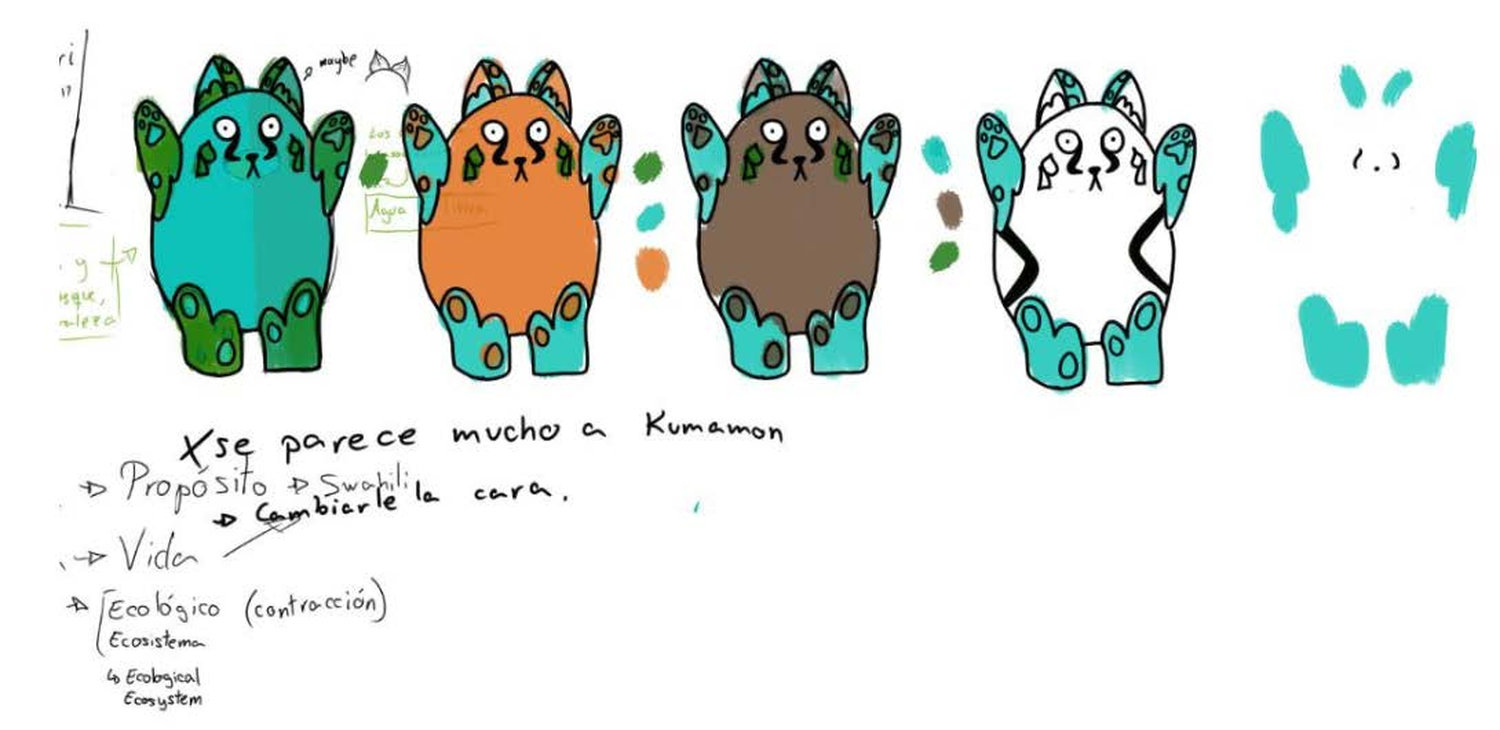 maybe
Agua
y
X se parece mucho a Kumamon
Propósito → Swahili
→ Cambiarle la cara.
→ Vida
→ Ecológico (contracción)
Ecosistema
↳ Ecological
Ecosystem